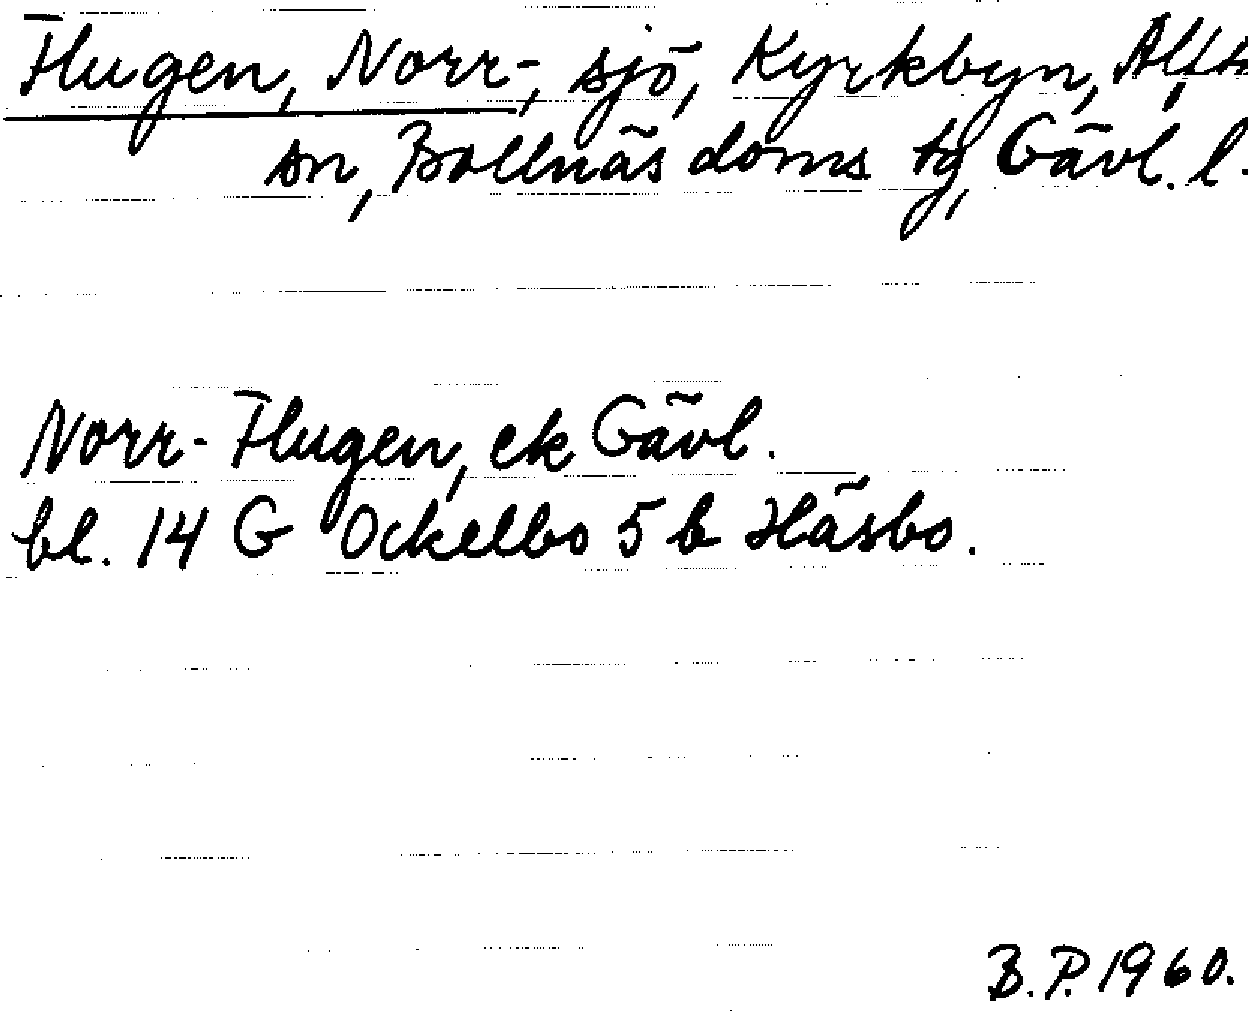 Flugen, Norr-, sjö, Kyrkbyn, Alfta
sn, Bollnäs doms tg, Gävl. l.
Norr-Flugen, ek Gävl.
bl. 14 G Ockelbo 5 b Häsbo.
B.P. 1960.